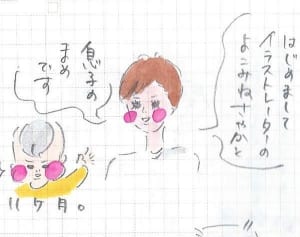 はじめまして
イラストレーターの
よこみねさやかと
息子の
まめ
です
11ヶ月。